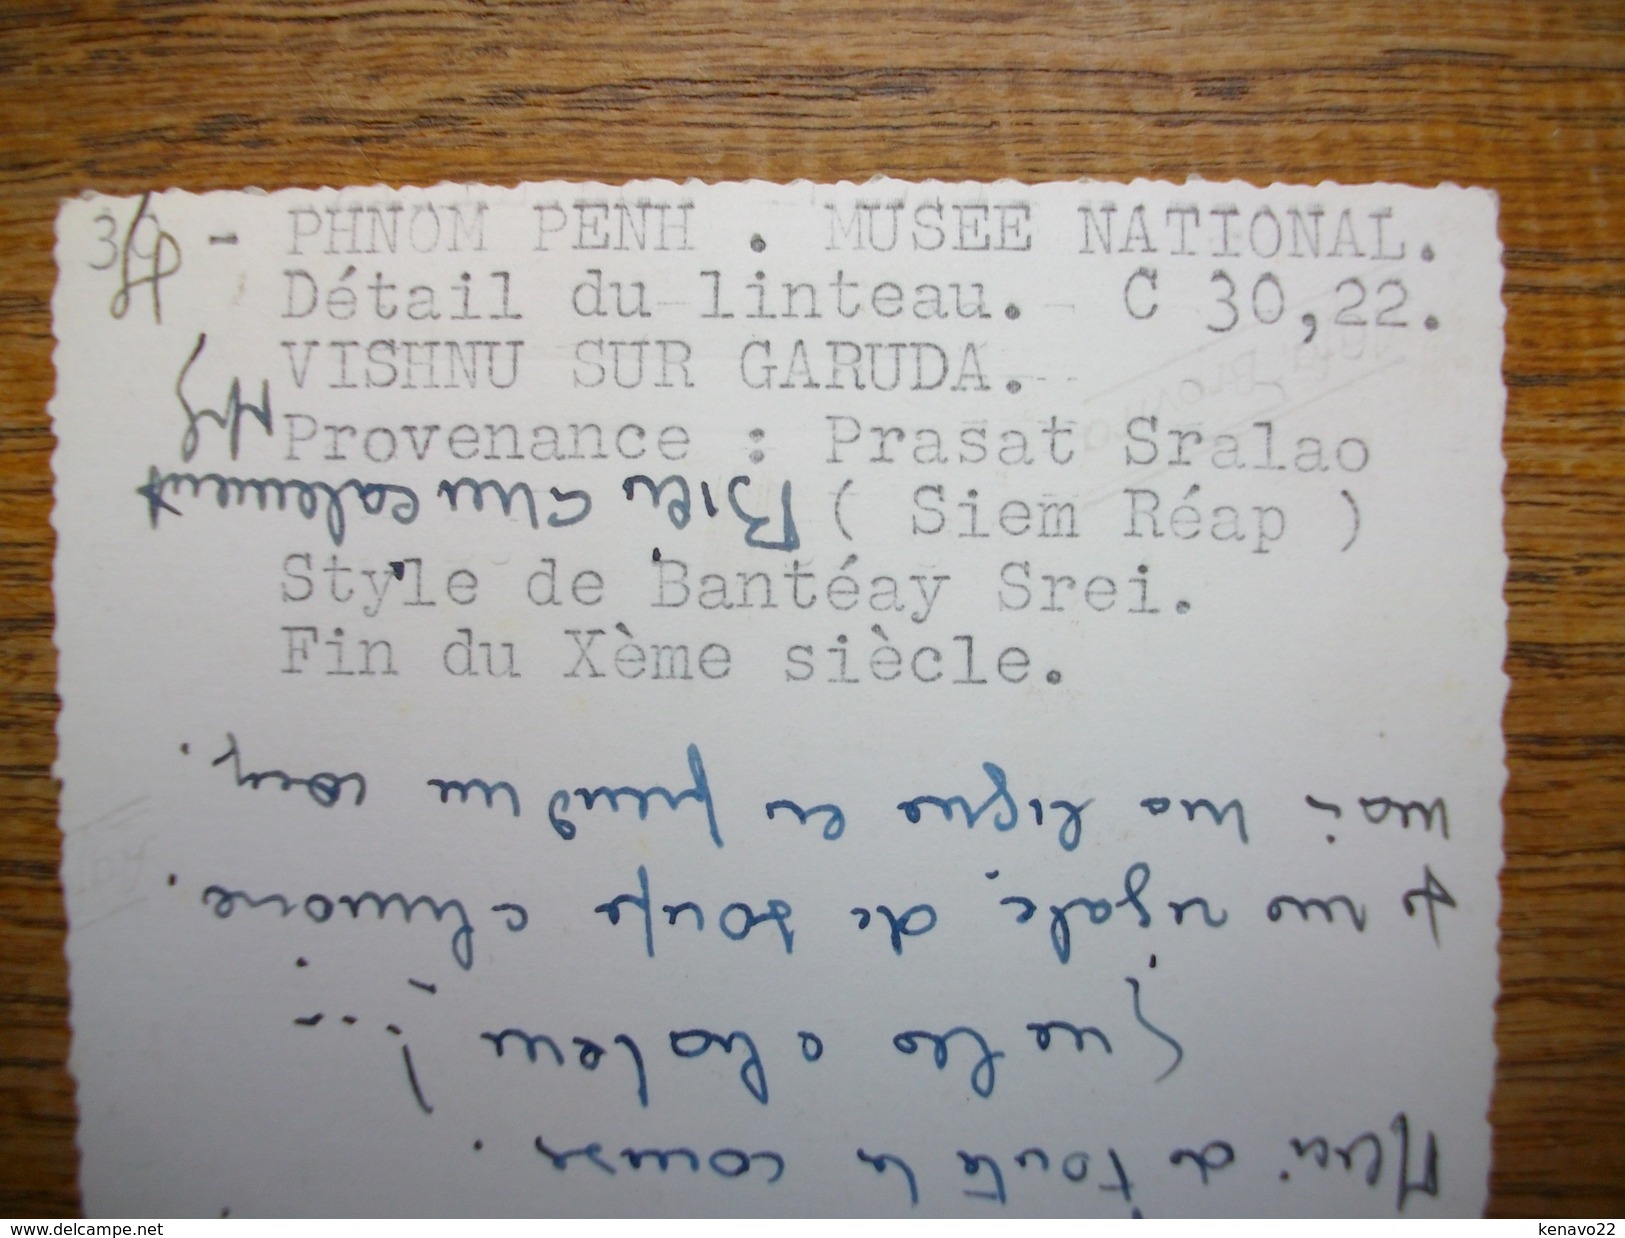 39 - PHNOM PENH . MUSEE NATIONAL.
Détail du linteau. - C 30,22.
VISHNU SUR GARUDA.
Provenance : Prasat Sralao
( Siem Réap )
Style de Bantéay Srei.
Fin du Xème siècle.
Merci de toute la
Quelle chaleur ! ...
régale de soupe chinoise.
moi ma ligne en prend un coup.
Bien amicalement
delcampe.net
kenavo22